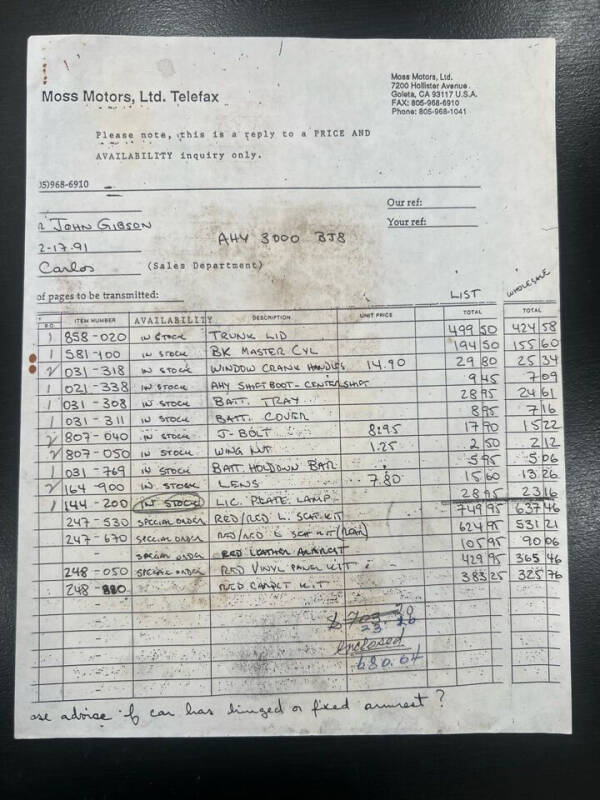 Moss Motors, Ltd.
7200 Hollister Avenue
Goleta, CA 93117 U.S.A.
FAX: 805-968-6910
Phone: 805-968-1041
Moss Motors, Ltd. Telefax
Please note, this is a reply to a PRICE AND
AVAILABILITY inquiry only.
05)968-6910
Our ref:
JOHN GIBSON Your ref:
2-17.91 AHY 3000 BJ8
Carlos (Sales Department)
of pages to be transmitted: LIST WHOLESALE
ITEM NUMBER AVAILABILITY DESCRIPTION UNIT PRICE TOTAL TOTAL
1 858-020 IN STOCK TRUNK LID 499 50 424 58
1 581-100 IN STOCK BK MASTER CYL 194 50 155 60
2 031-318 IN STOCK WINDOW CRANK HANDLES 14.90 29 80 25 34
1 021-338 IN STOCK AHY SHIFT BOOT-CENTERSHIFT 9 45 7 09
1 031-308 IN STOCK BATT. TRAY 28 95 24 61
1 031-311 IN STOCK BATT. COVER 8 95 7 16
2 807-040 IN STOCK J-BOLT 8.95 17 90 15 22
2 807-050 IN STOCK WING NUT 1.25 2 50 2 12
1 031-769 IN STOCK BATT. HOLDOWN BAR 5 95 5 06
2 164-900 IN STOCK LENS 7.80 15 60 13 26
1 144-200 IN STOCK LIC. PLATE LAMP 28 95 23 16
247-530 SPECIAL ORDER RED/RED L. SEAT KIT 749 95 637 46
247-670 SPECIAL ORDER RED/RED L SEAT KIT (REAR) 624 95 531 21
- SPECIAL ORDER RED LEATHER ARMREST 105 95 90 06
248-050 SPECIAL ORDER RED VINYL PANEL KIT 429 95 365 46
248-880 RED CARPET KIT 383 25 325 76
$ 703.20
23.16
enclosed
680.04
se advise if car has hinged or fixed armrest ?